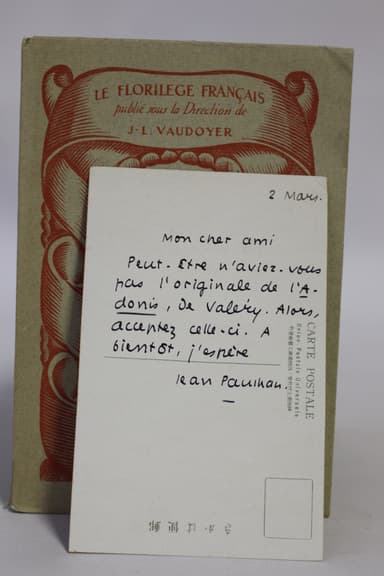 LE FLORILEGE FRANÇAIS
publié sous la Direction de
J-L. VAUDOYER
2 Mars.
Mon cher ami
Peut-Etre n'aviez-vous
pas l'originale de l'A-
donis, De Valéry. Alors,
acceptez celle-ci. A
bientôt, j'espère
Jean Paulhan.
CARTE POSTALE
Union Postale Universelle
きかは便郵